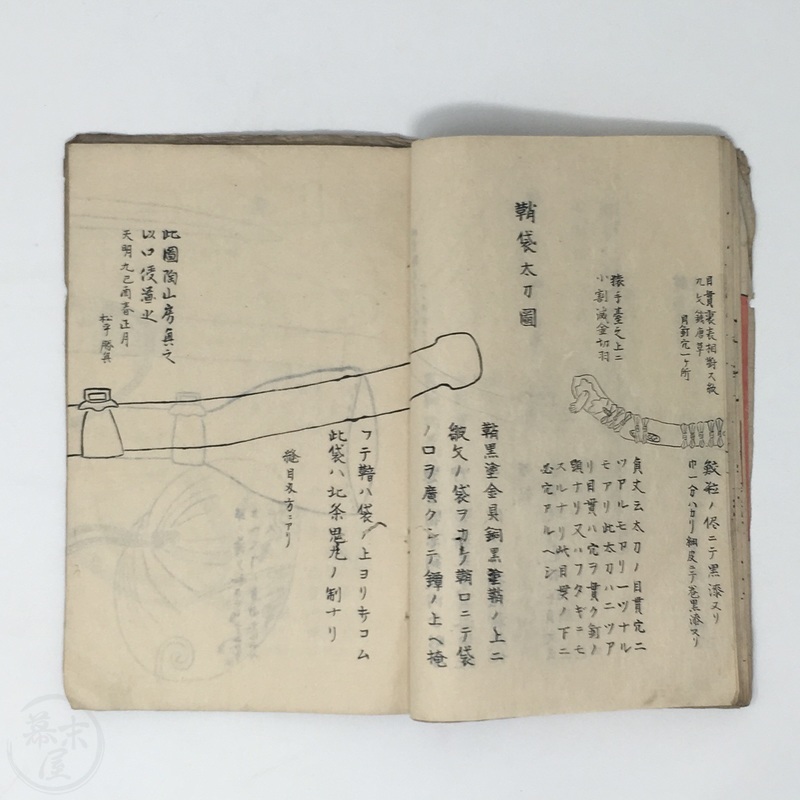 目貫裏表相對ス数
九曜唐草
目釘穴一ヶ所
鮫粒ノ侭ニテ黒漆ヌリ
巾一分ハカリ細皮ニテ巻黒漆ヌリ
猿手臺之上ニ
小割滅金切羽
貞丈云太刀ノ目貫穴二
ツアルモアリ一ツナル
モアリ此太刀ハ二ツア
リ目貫ハ穴ヲ貫ク釘ノ
頭ナリ又ハフタギニモ
スルナリ此目貫ノ下ニ
必穴アルヘシ
鞘袋太刀圖
鞘黒塗金具銅黒塗鞘ノ上ニ
皺文ノ袋ヲカケ鞘口ニテ袋
ノ口ヲ廣クシテ鐔ノ上ヘ掩
フテ鞜ハ袋ノ上ヨリキコム
此袋ハ北条思九ノ制ナリ
縫目双方ニアリ
此圖陶山房真之
以口傳識之
天明九己酉春正月
松平勝真
幕末屋